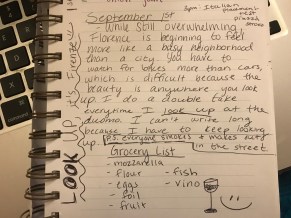 September 1st
While still overwhelming,
Florence is beginning to feel
more like a busy neighborhood
than a city. You have to
watch for bikes more than cars,
which is difficult because the
beauty is anywhere you look
up. I do a double take
everytime I look up at the
duomo. I can't write long
because I have to keep looking
up. P.S. everyone smokes & makes out
in the street
3pm: Italian
placement
test
Grocery List
- mozzarella
- flour
- eggs
- foil
- fruit
- fish
- vino
LOOK UP, it's Firenze!